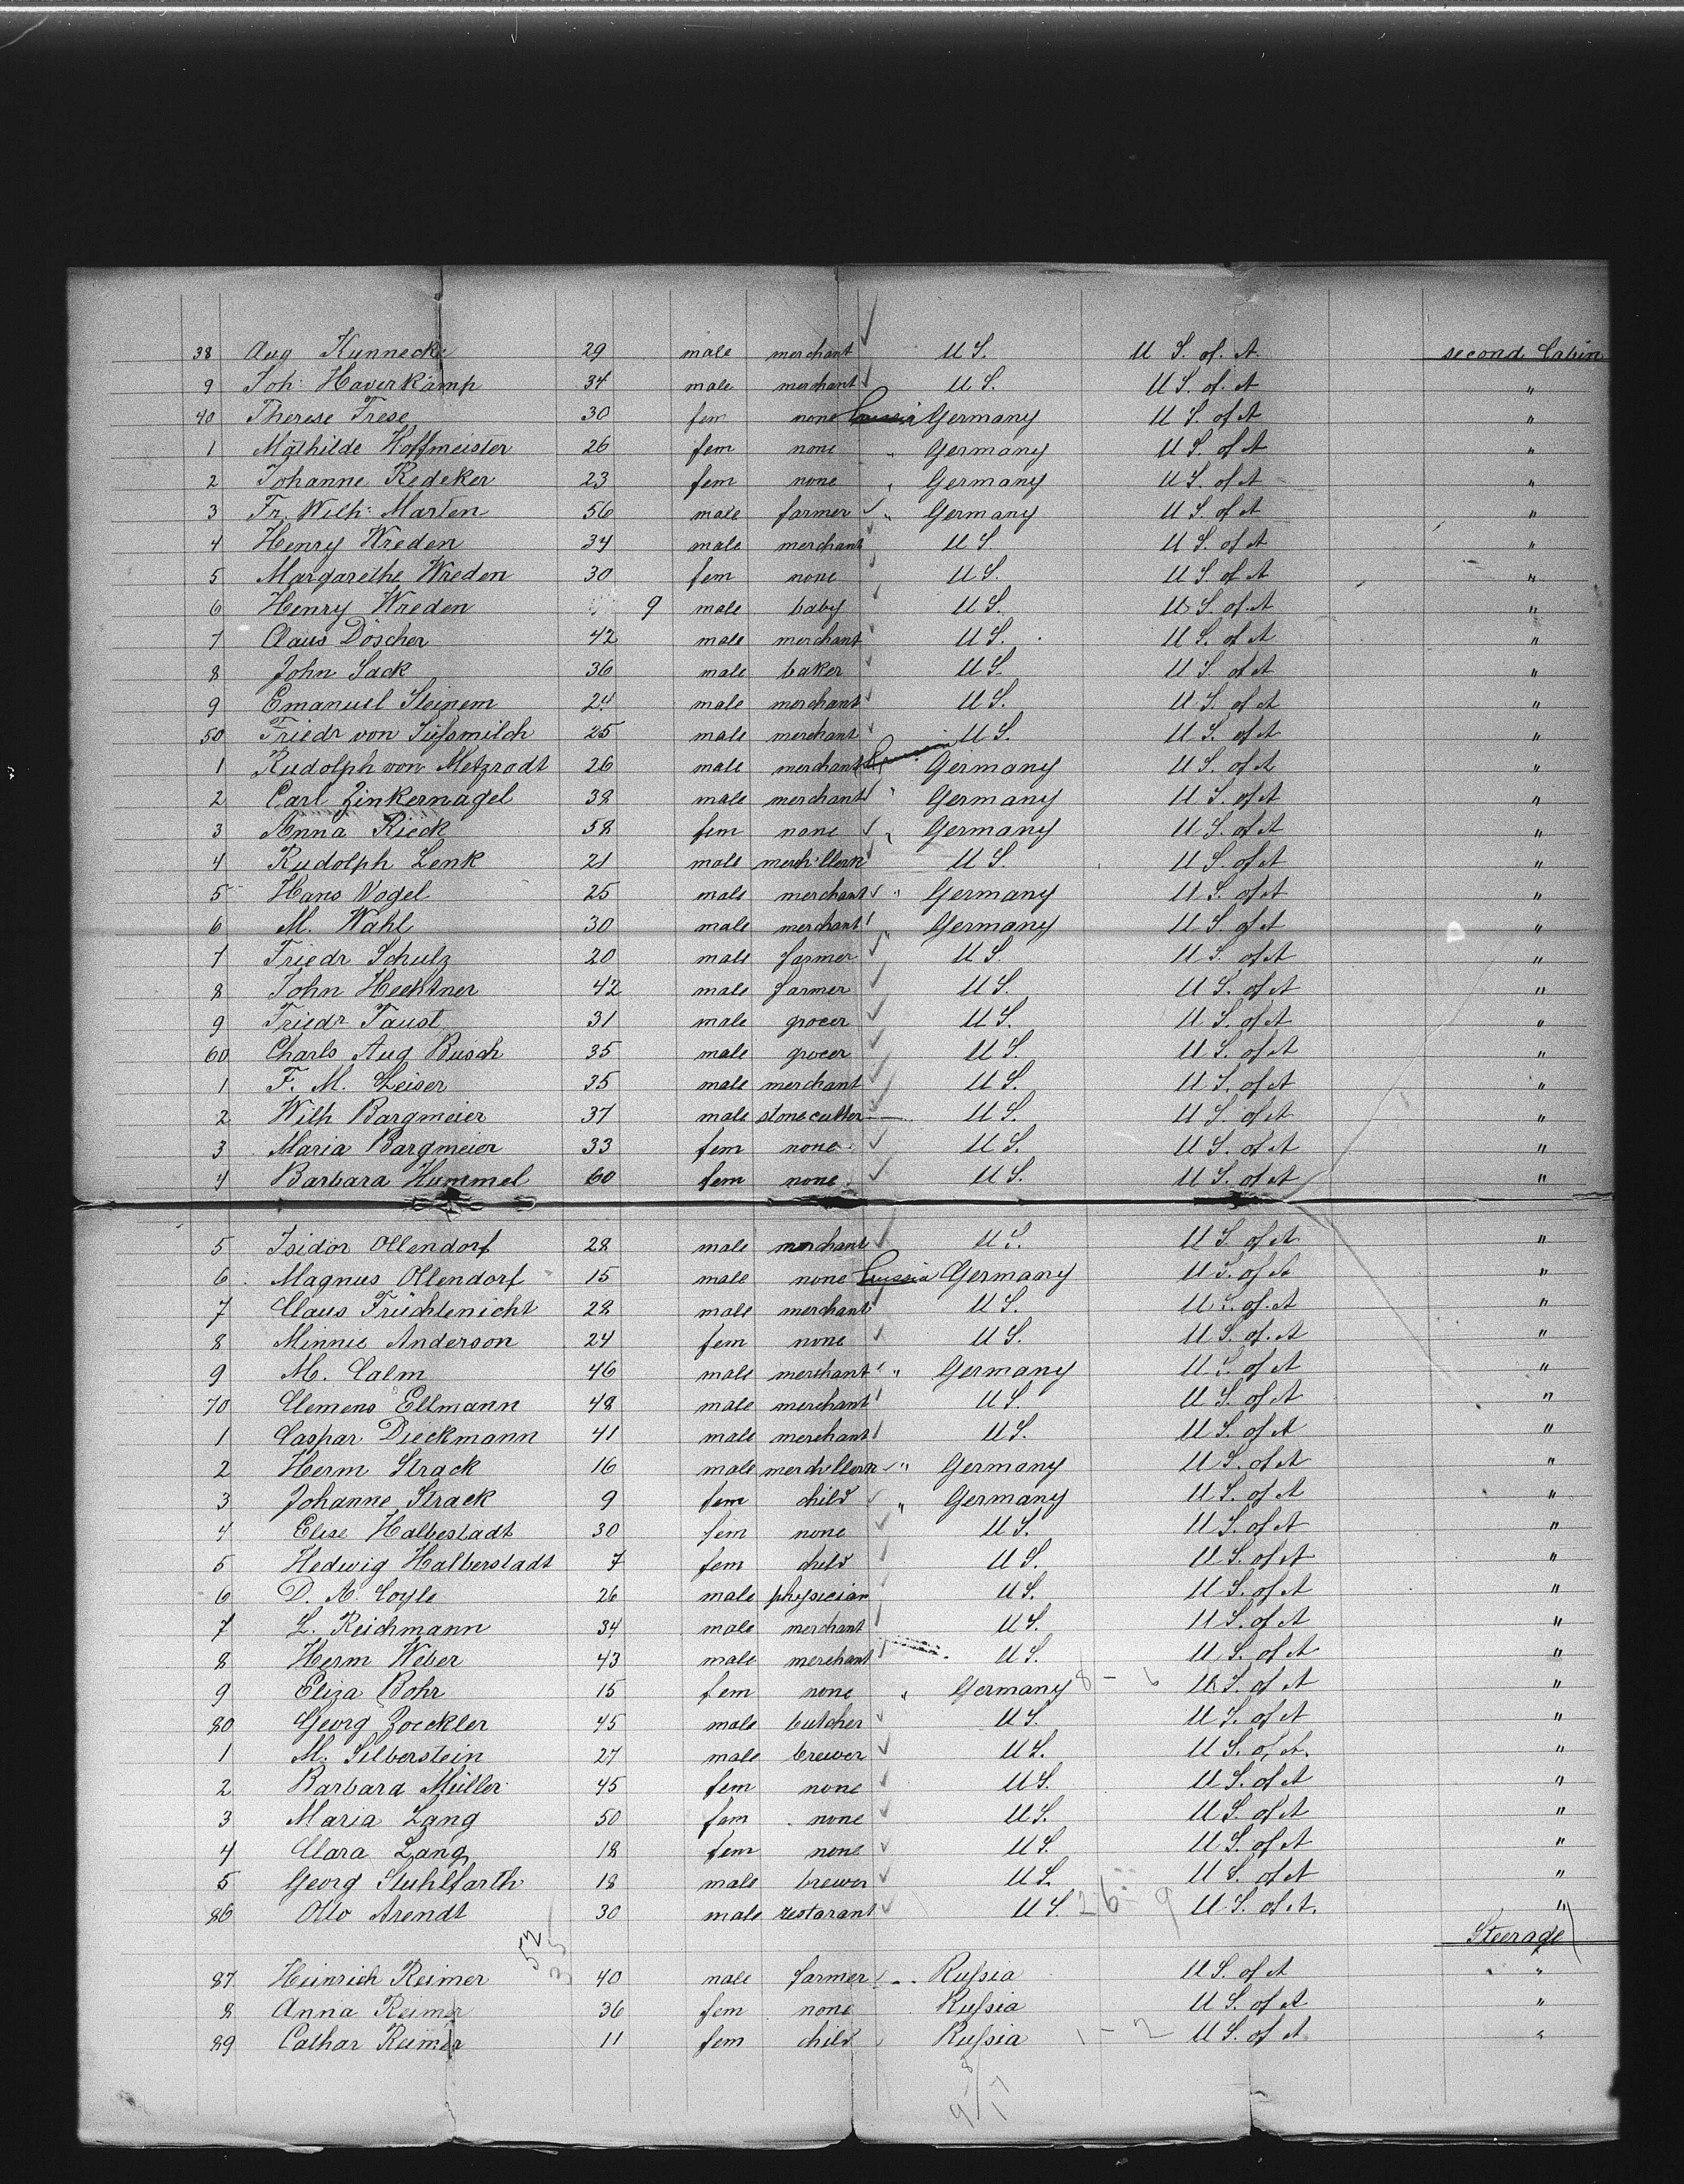 38 Aug Kunnecke 29 male merchant U S. U S. of. A. second Cabin
9 Joh: Haverkamp 34 male merchant U S. U S. of. A "
40 Therese Frese 30 fem none Prussia Germany U S. of A "
1 Mathilde Hoffmeister 26 fem none " Germany U S. of A "
2 Johanne Redeker 23 fem none " Germany U S. of A "
3 Fr. Wilh: Marten 56 male farmer " Germany U S. of A "
4 Henry Wreden 34 male merchant U S. U S. of A "
5 Margarethe Wreden 30 fem none U S. U S. of A "
6 Henry Wreden 9 male baby U S. U S. of. A "
7 Claus Döscher 42 male merchant U S. U S. of A "
8 John Sack 36 male baker U S. U S. of A "
9 Emanuel Steinem 24 male merchant U S. U S. of A "
50 Friedr von Süßmilch 25 male merchant U S. U S. of A "
1 Rudolph von Metzrodt 26 male merchant Prussia Germany U S. of A "
2 Carl Zinkernagel 38 male merchant " Germany U S. of A "
3 Anna Rieck 58 fem none " Germany U S. of A "
4 Rudolph Lenk 21 male merch: clerk U S. U S. of A "
5 Hans Vogel 25 male merchant " Germany U S. of A "
6 M. Wahl 30 male merchant " Germany U S. of A "
7 Friedr Schulz 20 male farmer U S. U S. of A "
8 John Hecktner 42 male farmer U S. U S. of A "
9 Friedr Faust 31 male grocer U S. U S. of A "
60 Charls Aug Busch 35 male grocer U S. U S. of A "
1 F. M. Leiser 35 male merchant U S. U S. of A "
2 Wilh Bargmeier 37 male stone cutter U S. U S. of A "
3 Maria Bargmeier 33 fem none U S. U S. of A "
4 Barbara Hummel 60 fem none U S. U S. of A "
5 Isidor Ollendorf 28 male merchant U S. U S. of A "
6 Magnus Ollendorf 15 male none Prussia Germany U S. of A "
7 Claus Früchtenicht 28 male merchant U S. U S. of. A "
8 Minnie Anderson 24 fem none U S. U S. of. A "
9 M. Calm 46 male merchant " Germany U S. of A "
70 Clemens Ellmann 48 male merchant U S. U S. of A "
1 Caspar Dieckmann 41 male merchant U S. U S. of A "
2 Herm Strack 16 male merch clerk " Germany U S. of A "
3 Johanne Strack 9 fem child " Germany U S. of A "
4 Elise Halbestadt 30 fem none U S. U S. of A "
5 Hedwig Halberstadt 7 fem child U S. U S. of A "
6 D. A. Coyle 26 male physician U S. U S. of A "
7 L. Reichmann 34 male merchant U S. U S. of A "
8 Herm Weber 43 male merchant U S. U S. of A "
9 Eliza Bohr 15 fem none " Germany 8 - 6 U S. of A "
80 Georg Zoeckler 45 male butcher U S. U S. of A "
1 M. Silberstein 27 male brewer U S. U S. of A. "
2 Barbara Müller 45 fem none U S. U S. of A "
3 Maria Lang 50 fem none U S. U S. of A "
4 Clara Lang 18 fem none U S. U S. of A "
5 Georg Stuhlfarth 18 male brewer U S. U S. of A "
86 Otto Arendt 30 male restarant U S. 26 9 U S. of A. "
52
35
Steerage
87 Heinrich Reimer 40 male farmer Rußia U S. of A "
8 Anna Reimer 36 fem none Rußia U S. of A "
89 Cathar Reimer 11 fem child Rußia 1 - 2 U S. of A "